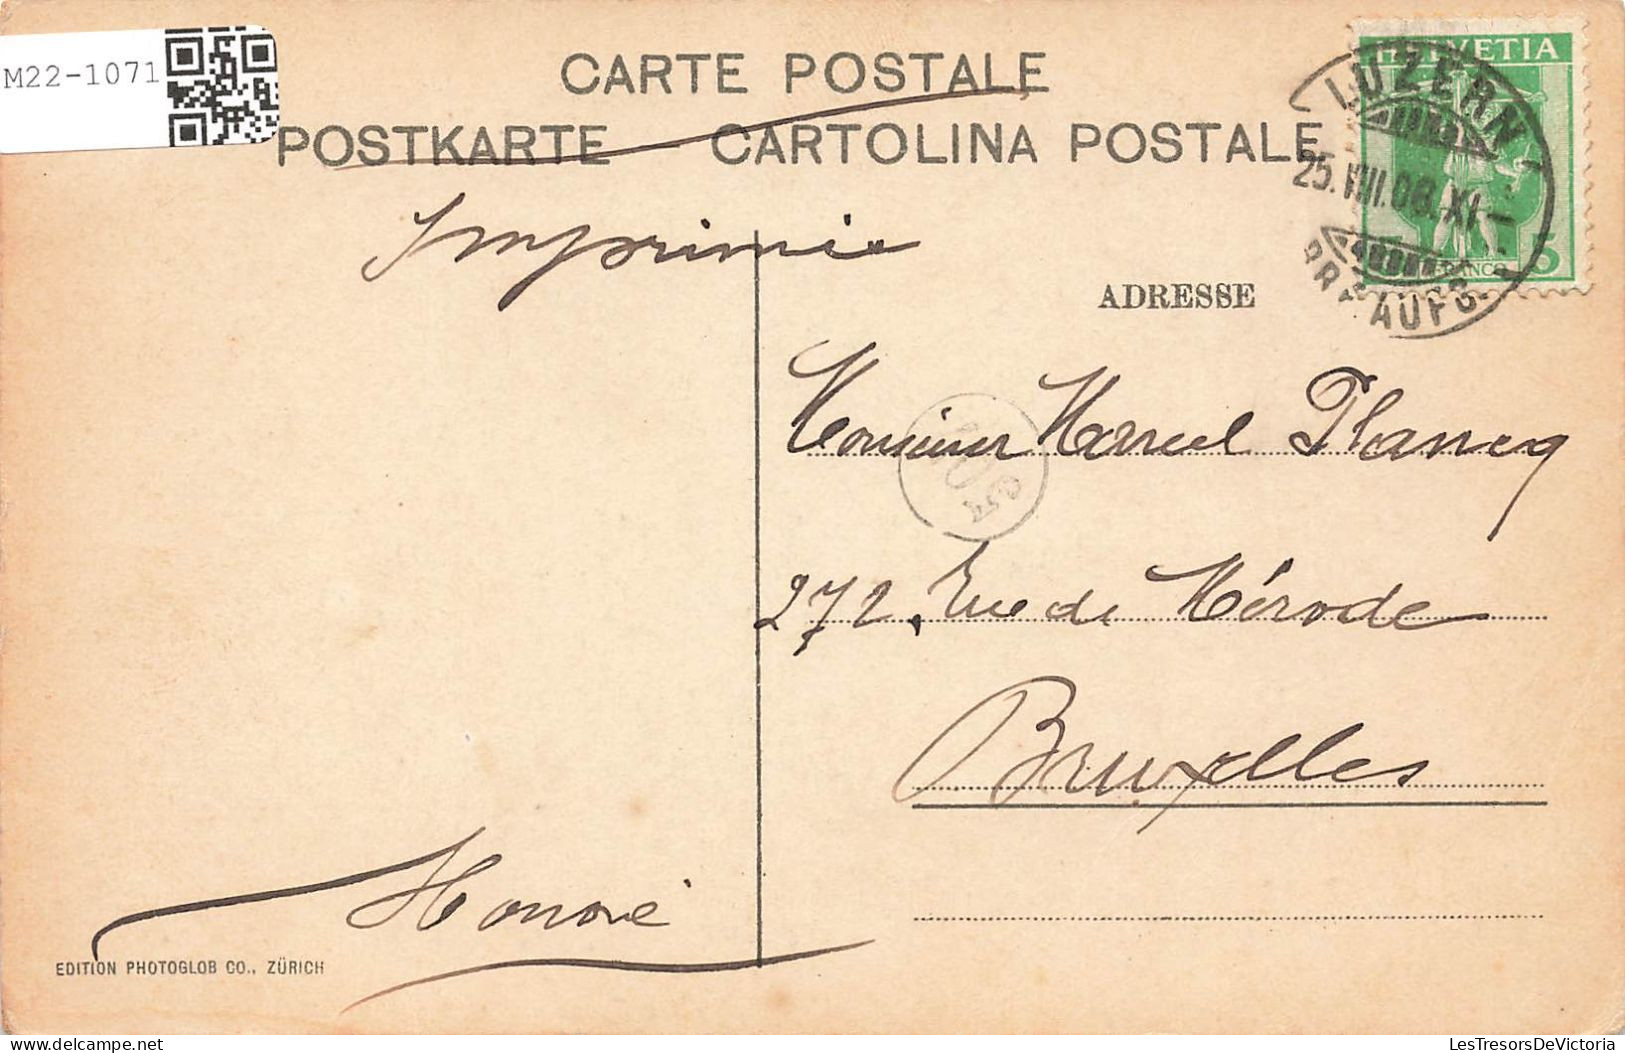 M22-1071
CARTE POSTALE
POSTKARTE CARTOLINA POSTALE
HELVETIA
LUZERN
25.VIII.08.XI-
BRF. AUFG.
FRANCO 5
Imprimé
ADRESSE
Monsieur Marcel Plancq
272, Rue de Mérode
Bruxelles
Honoré
EDITION PHOTOGLOB CO., ZÜRICH
LesTresorsDeVictoria